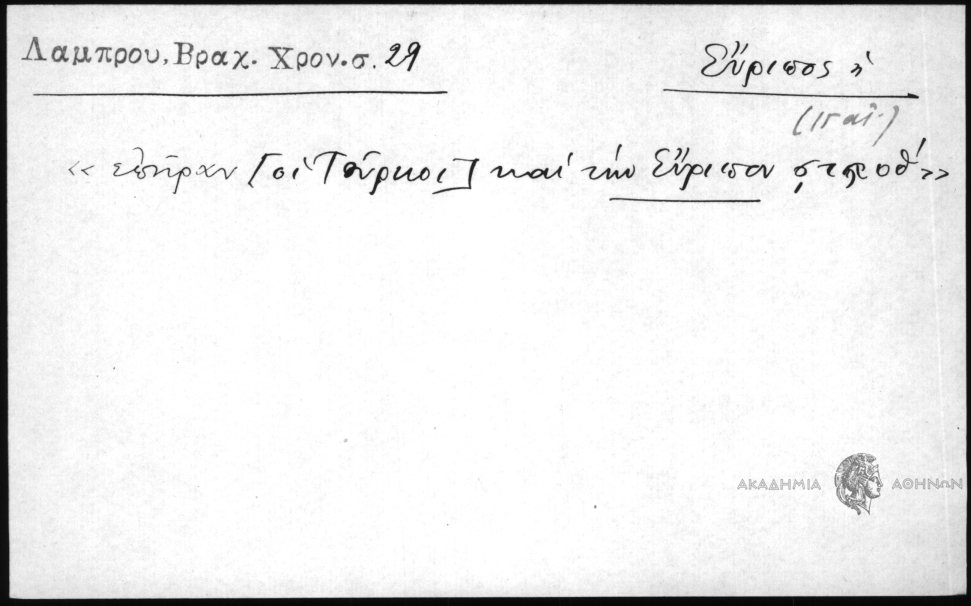 Λαμπρου, Βραχ. Χρον. σ. 29
Εὔριπος ἡ
(15 αἰ.)
«ἐπῆραν [οἱ Τοῦρκοι] καὶ τὴν Εὔριπον
ΑΚΑΔΗΜΙΑ ΑΘΗΝΩΝ